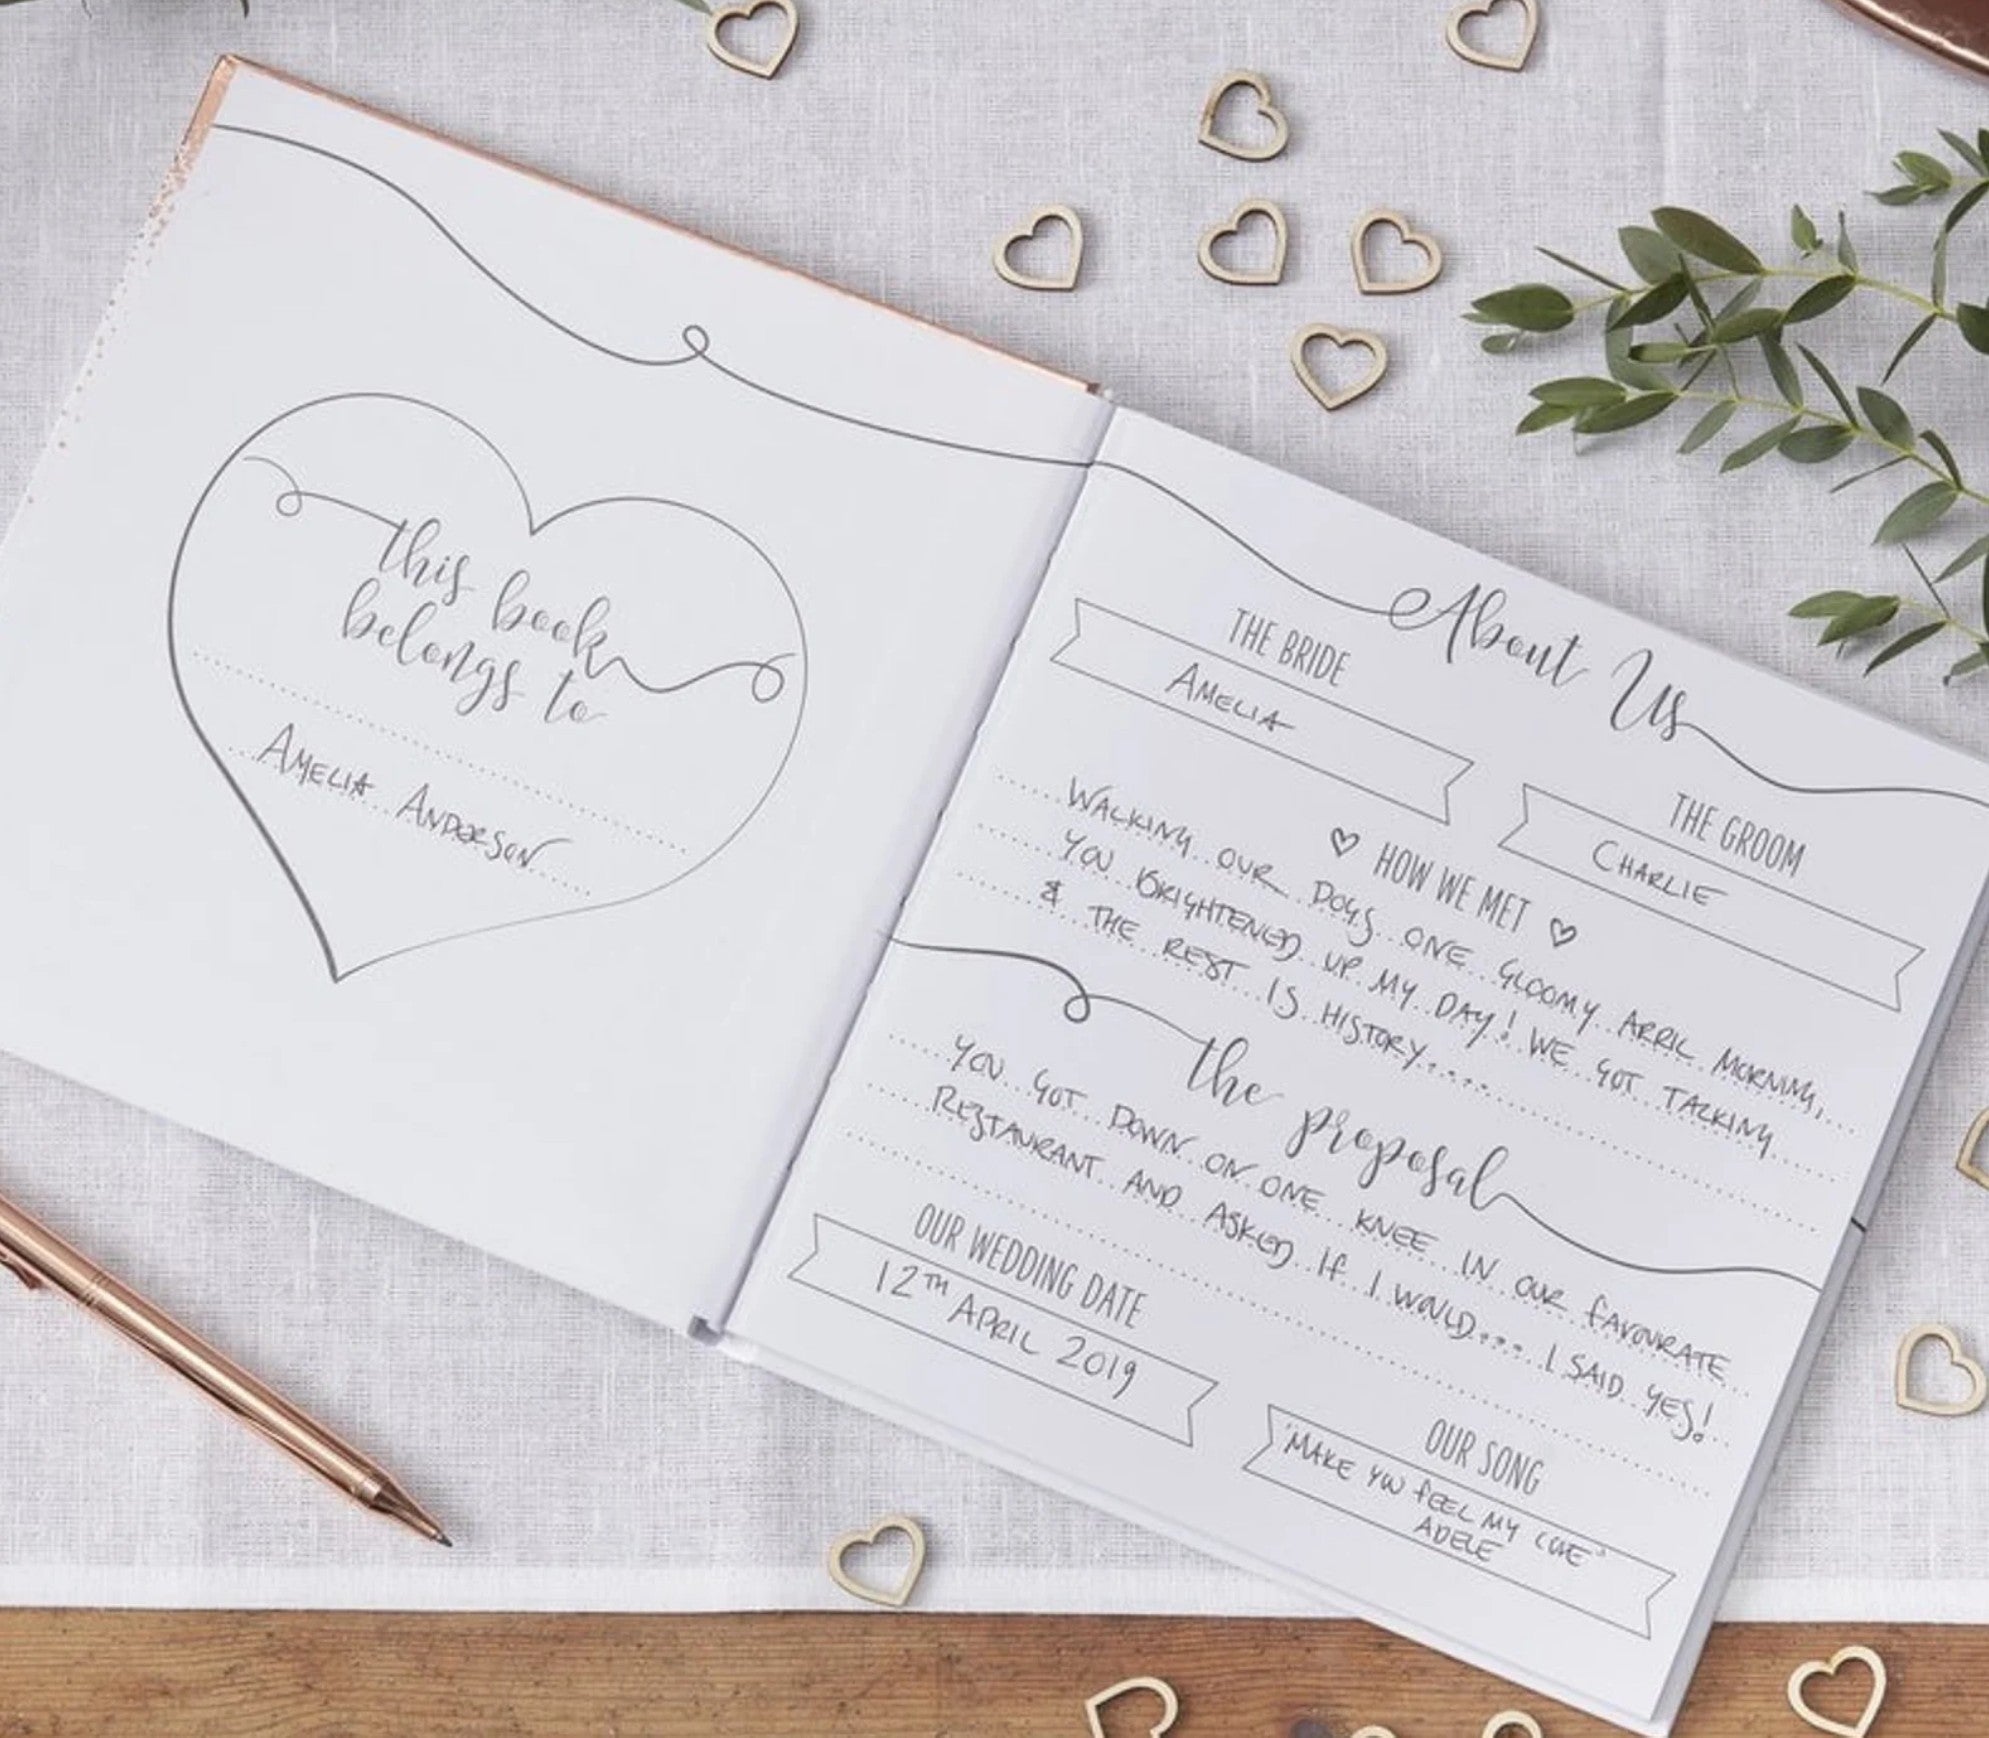 this book
belongs to
AMELIA ANDERSON
About Us
THE BRIDE
AMELIA
THE GROOM
CHARLIE
♡ HOW WE MET ♡
WALKING OUR DOGS ONE GLOOMY APRIL MORNING,
YOU BRIGHTENED UP MY DAY! WE GOT TALKING
& THE REST IS HISTORY.....
the proposal
YOU GOT DOWN ON ONE KNEE IN OUR FAVOURATE
RESTAURANT AND ASKED IF I WOULD.... I SAID YES!
OUR WEDDING DATE
12TH APRIL 2019
OUR SONG
"MAKE YOU FEEL MY LOVE"
ADELE